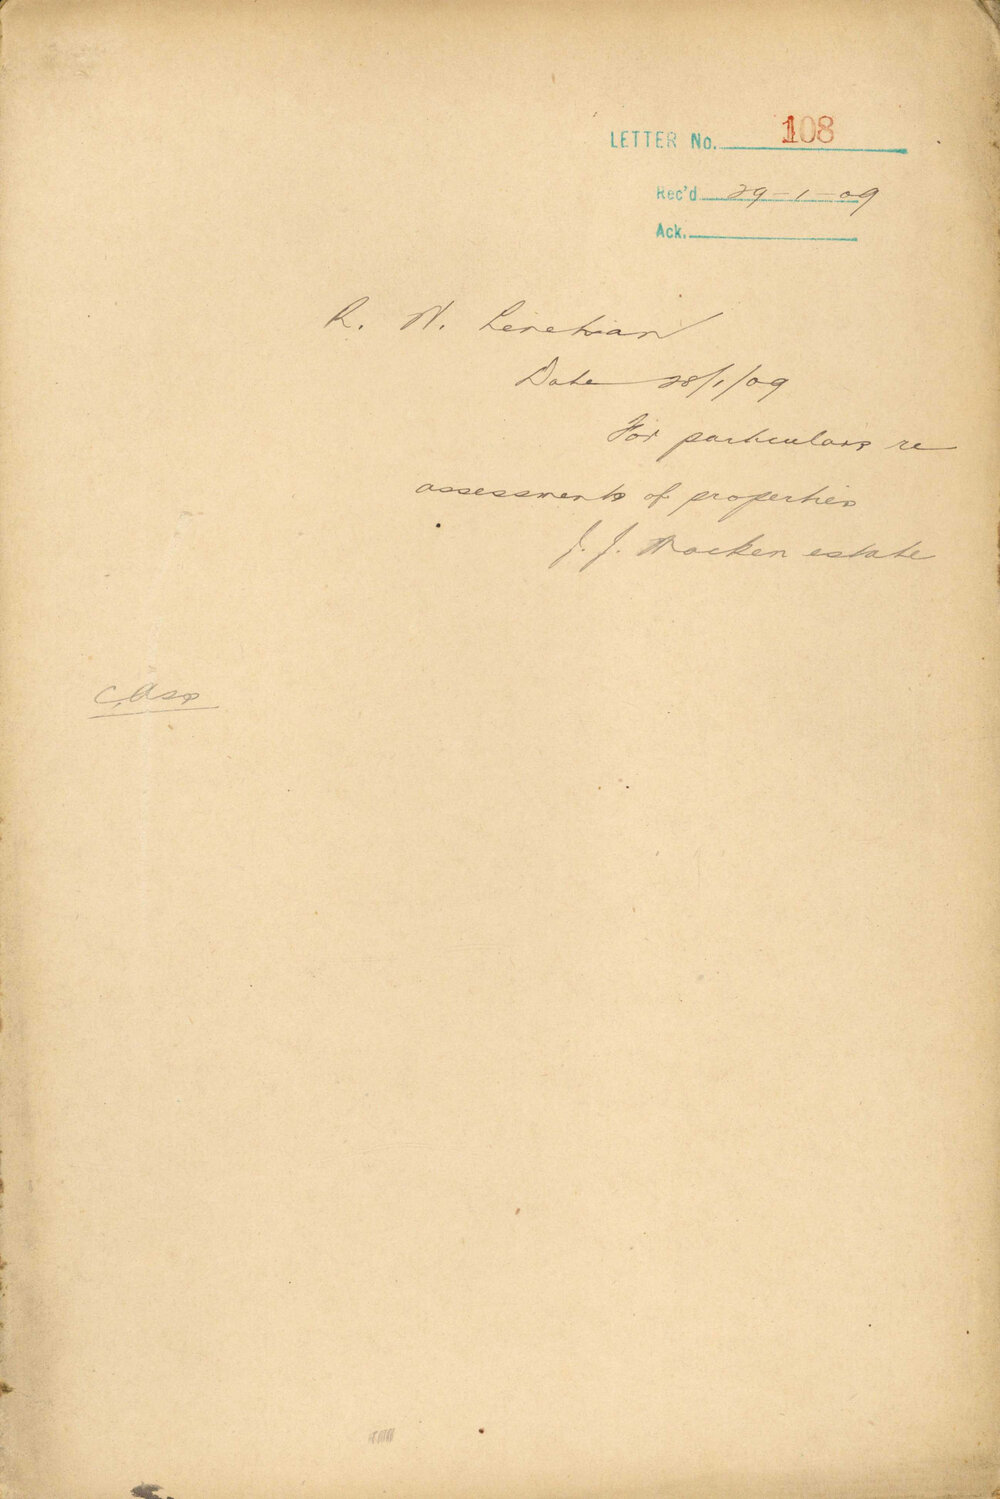 LETTER No. 108
Rec'd 29-1-09
Ack.
R. W. Lenehan
Date 28/1/09
For particulars re
assessments of properties
J. J. Macken estate
C. Ass